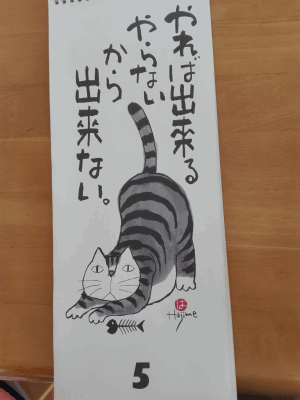 やれば出来る
やらない
から
出来ない。
は
Hajime
5